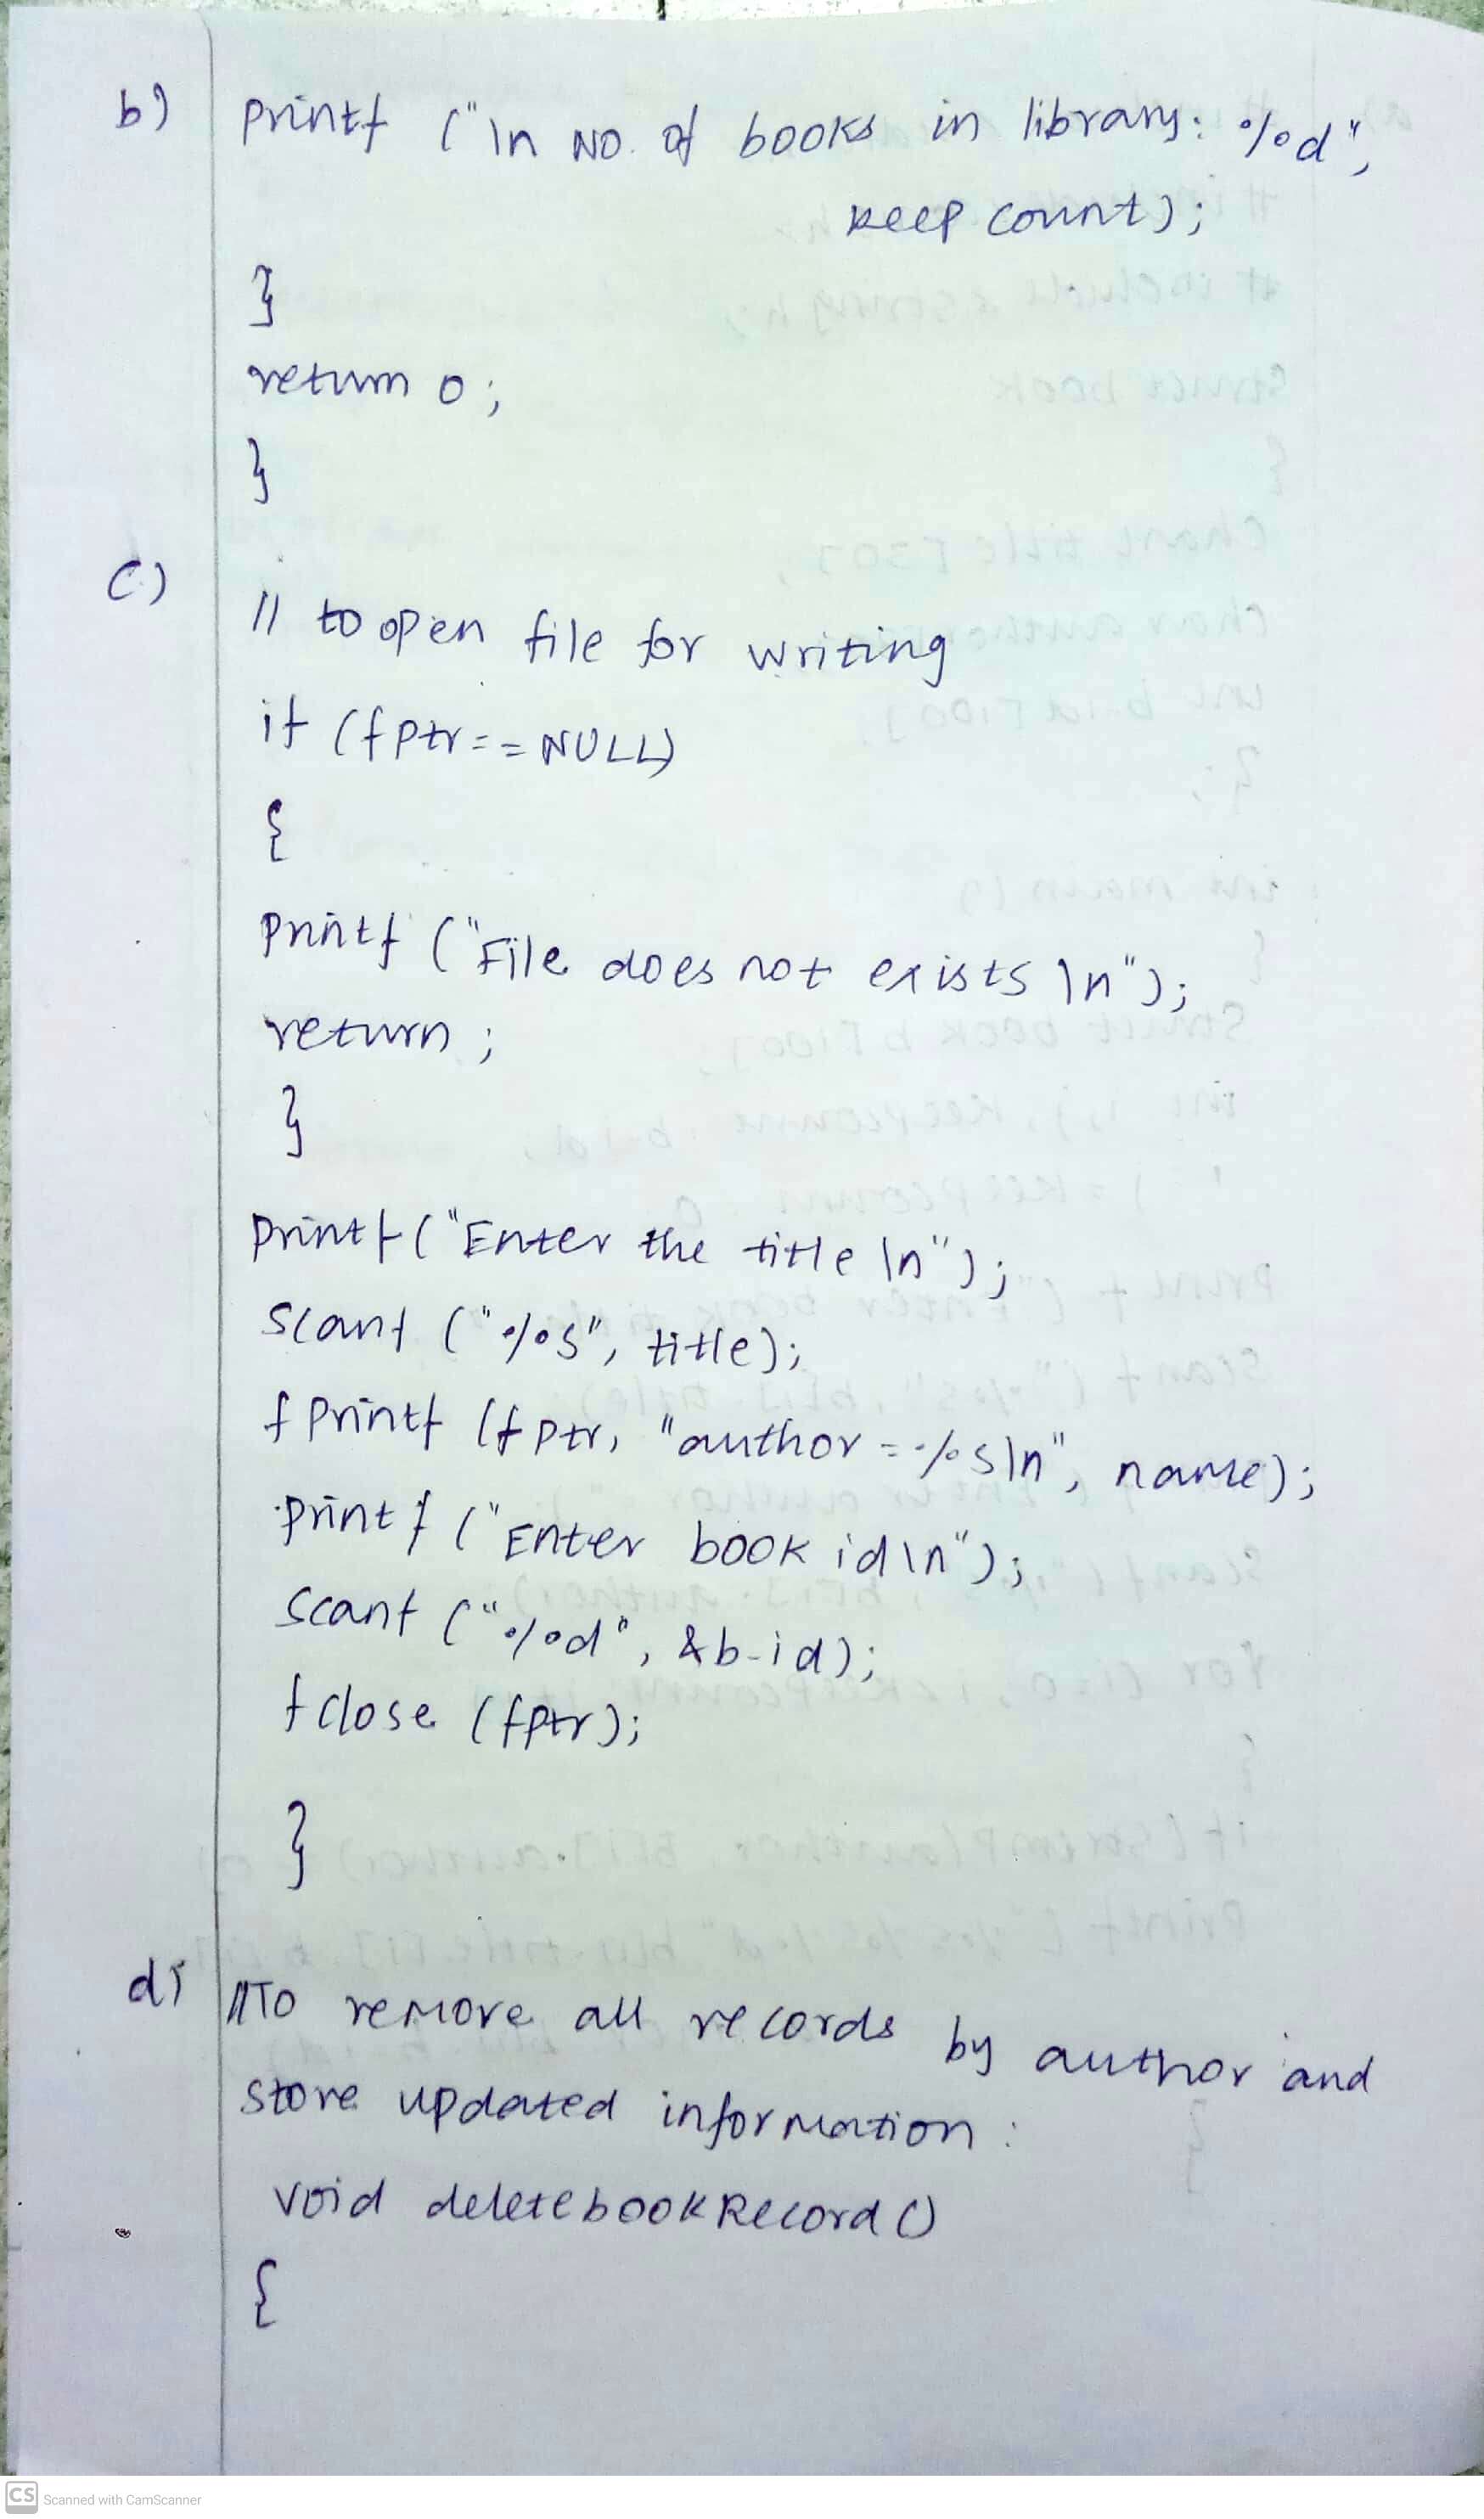 b) printf ("\n NO. of books in library: %d",
keep count);
}
return 0;
}
c) // to open file for writing
if (fptr == NULL)
{
printf ("File does not exists \n");
return ;
}
printf ("Enter the title \n");
scanf ("%s", title);
fprintf (fptr, "author = %s\n", name);
printf ("Enter book id \n");
scanf ("%d", &b-id);
fclose (fptr);
}
d) //To remove all records by author and
store updated information :
void deletebookRecord ()
{
CS Scanned with CamScanner